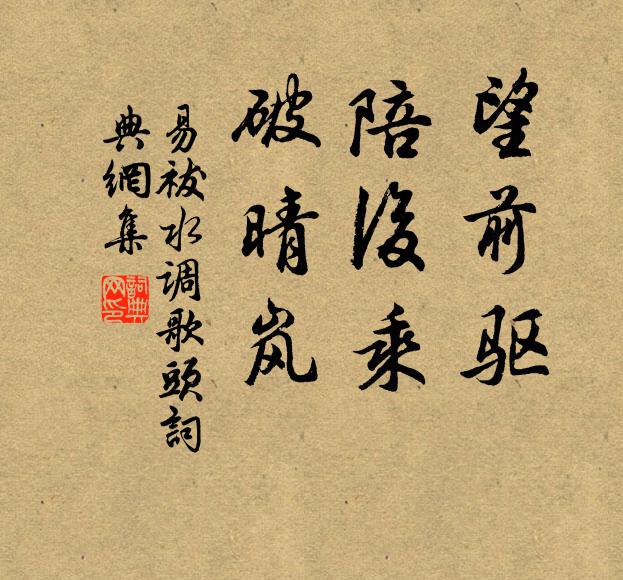 望前驱
陪后乘
破晴岚
易祓水调歌頭詞
典網集
詞典
网印